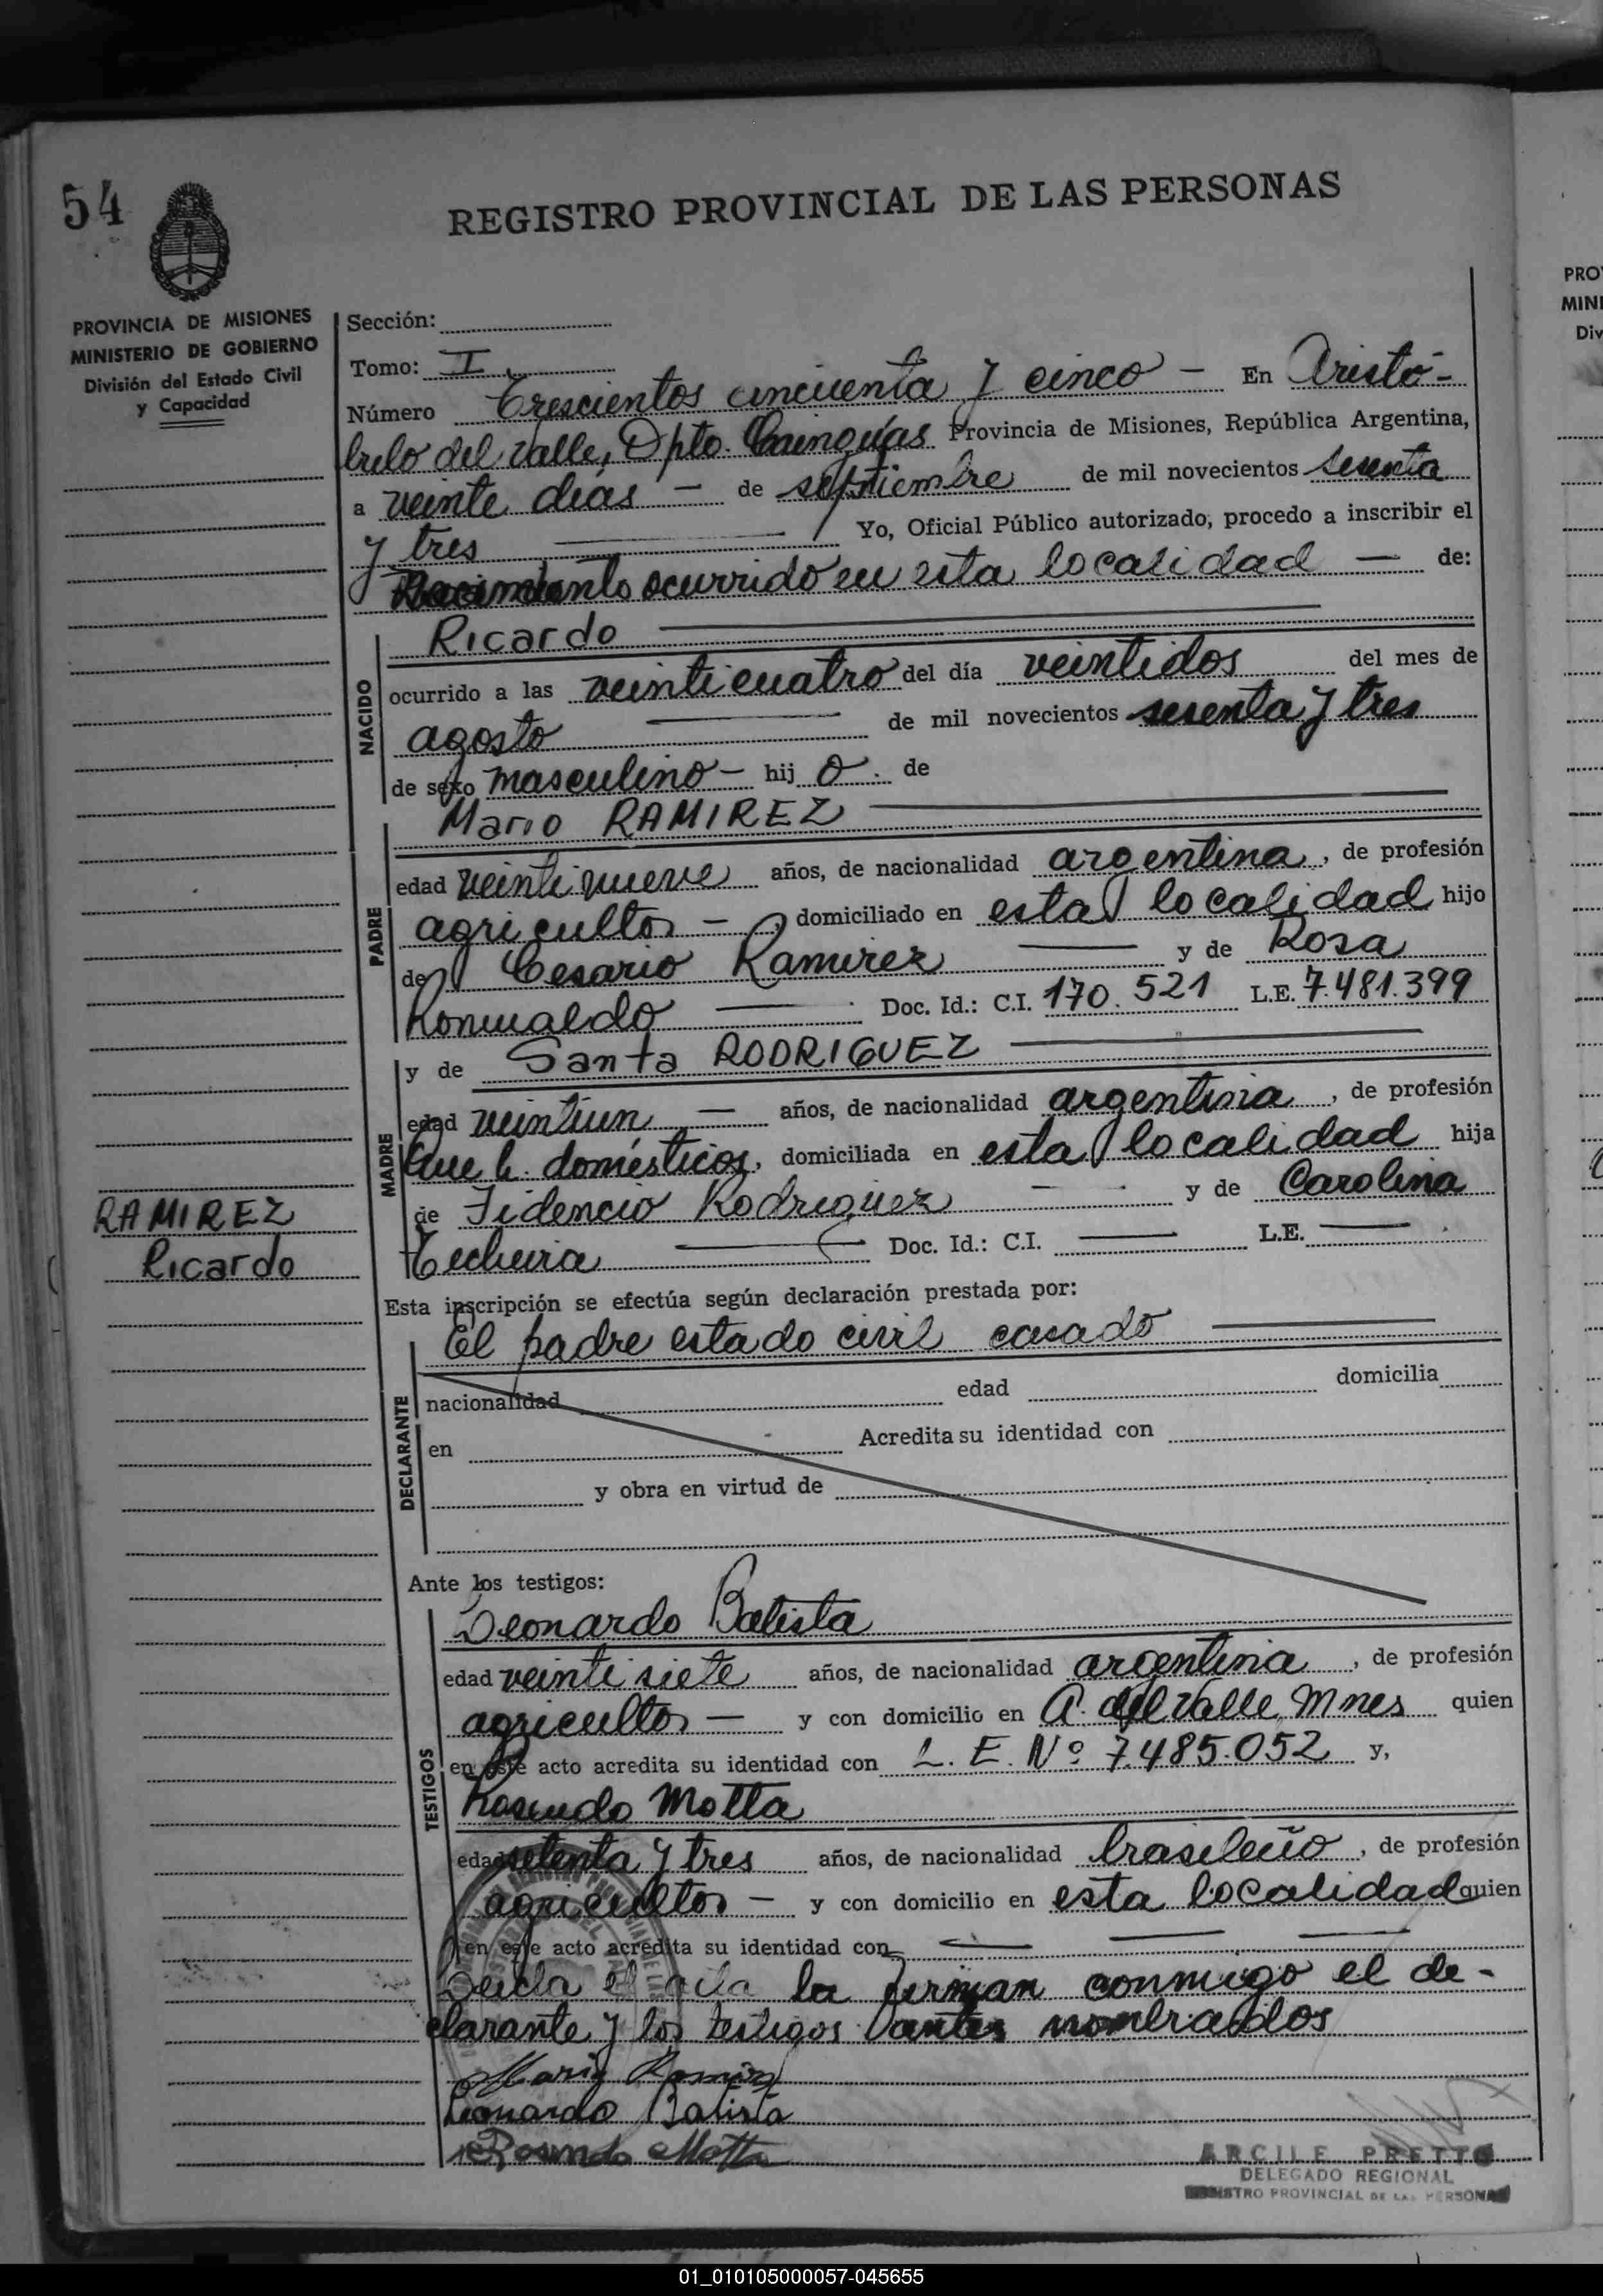 54
REGISTRO PROVINCIAL DE LAS PERSONAS
PROVINCIA DE MISIONES
MINISTERIO DE GOBIERNO
División del Estado Civil
y Capacidad
Sección:
Tomo: I
Número Trescientos cincuenta y cinco — En Aristó-
bulo del Valle, Dpto. Cainguás Provincia de Misiones, República Argentina,
a veinte días — de septiembre de mil novecientos sesenta
y tres Yo, Oficial Público autorizado, procedo a inscribir el
Nacimiento ocurrido en esta localidad — de:
Ricardo
NACIDO
ocurrido a las veinticuatro del día veintidos del mes de
agosto de mil novecientos sesenta y tres
de sexo masculino — hij o. de
Mario RAMIREZ
PADRE
edad veintinueve años, de nacionalidad argentina, de profesión
agricultor — , domiciliado en esta localidad hijo
de Cesario Ramirez y de Rosa
Romualdo Doc. Id.: C.I. 170.521 L.E. 7.481.399
y de Santa RODRIGUEZ
MADRE
edad veintiun — años, de nacionalidad argentina, de profesión
Que h. domésticos, domiciliada en esta localidad hija
de Fidencio Rodriguez — y de Carolina
Techeira Doc. Id.: C.I. — L.E. —
RAMIREZ
Ricardo
Esta inscripción se efectúa según declaración prestada por:
El padre estado civil casado
DECLARANTE
nacionalidad edad domicilia
en Acredita su identidad con
y obra en virtud de
Ante los testigos:
Leonardo Batista
TESTIGOS
edad veintisiete años, de nacionalidad argentina, de profesión
agricultor — y con domicilio en A. del Valle, Mnes quien
en este acto acredita su identidad con L. E. Nº 7.485.052 y,
Rosendo Motta
edad setenta y tres años, de nacionalidad brasileño, de profesión
agricultor — y con domicilio en esta localidad quien
en este acto acredita su identidad con — — —
Leida el acta la firman conmigo el de-
clarante y los testigos antes nombrados
Mario Ramirez
Leonardo Batista
Rosendo Motta
ARCILE PRETTO
DELEGADO REGIONAL
REGISTRO PROVINCIAL DE LAS PERSONAS
PRO
MINI
Div
01_010105000057-045655